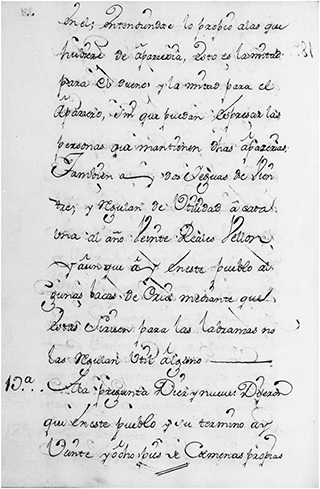 en el; entendiendose lo propio a las que
hubiere de aparzeria, esto es la mitad
para el Dueño, y la mitad para el
Aparzero, sin que puedan expresar las
personas que mantienen dhas aparzerias.
Tambien ay dos Yeguas de Vien
tre, y regulan de Utilidad a cada
una al año Veinte Reales Vellon
y aunque ay en este pueblo al
gunas bacas de Cria mediante que
estas sirven para las labranzas no
las regulan Util alguno
19.a.. A la pregunta Diez y nueve Dijeron
que en este pueblo y su termino ay
Veinte y ocho pies de Colmenas propias